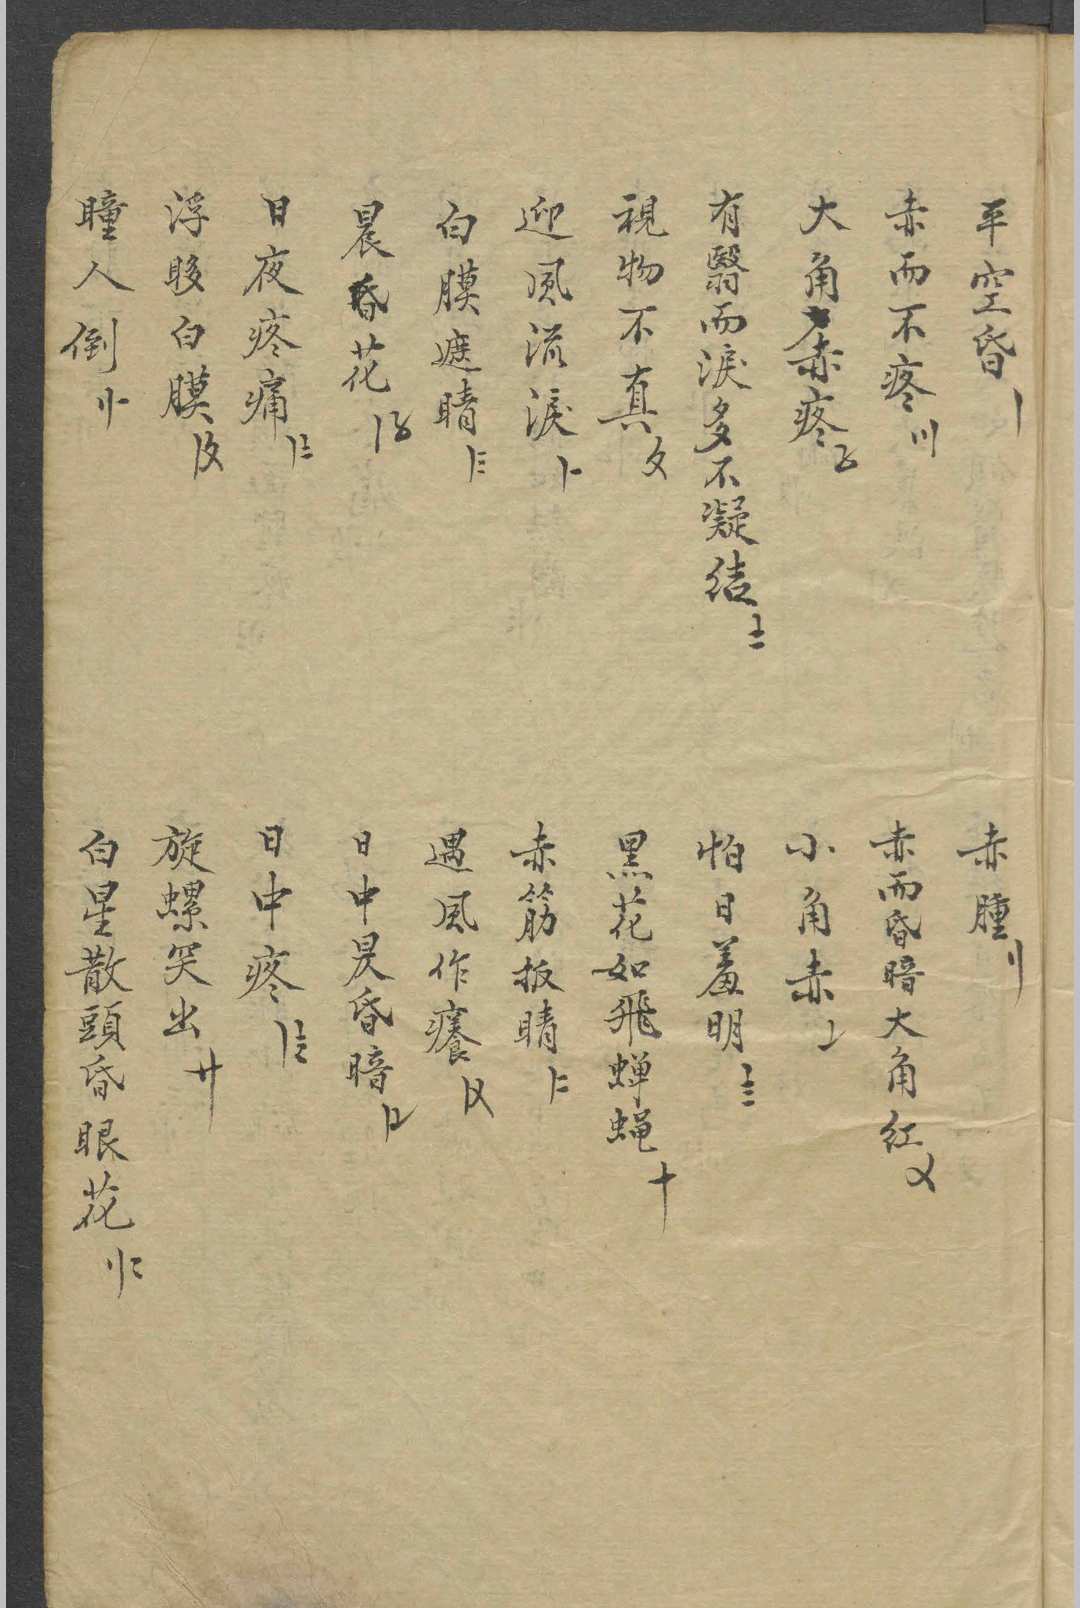 平空昏〡
赤腫〢
赤而不疼〣
赤而昏暗大角紅〤
大角赤疼〥
小角赤〦
有翳而淚多不凝结〧
怕日羞明〨
視物不真〩
黑花如飛蝉蝇十
迎風流淚〡一
赤筋扳睛〡二
白膜遮睛〡三
遇風作癢〡〤
晨昏花〡〥
日中昃昏暗〡〦
日夜疼痛〡〧
日中疼〡〨
浮眵白膜〡〩
旋螺突出廿
瞳人倒〢一
白星散頭昏眼花〢二